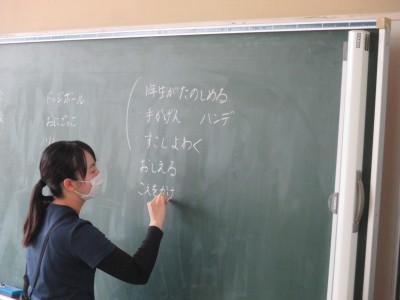 ドッジボール
おにごっこ
1年生がたのしめる
手かげん ハンデ
すこしよわく
おしえる
こえをかけ